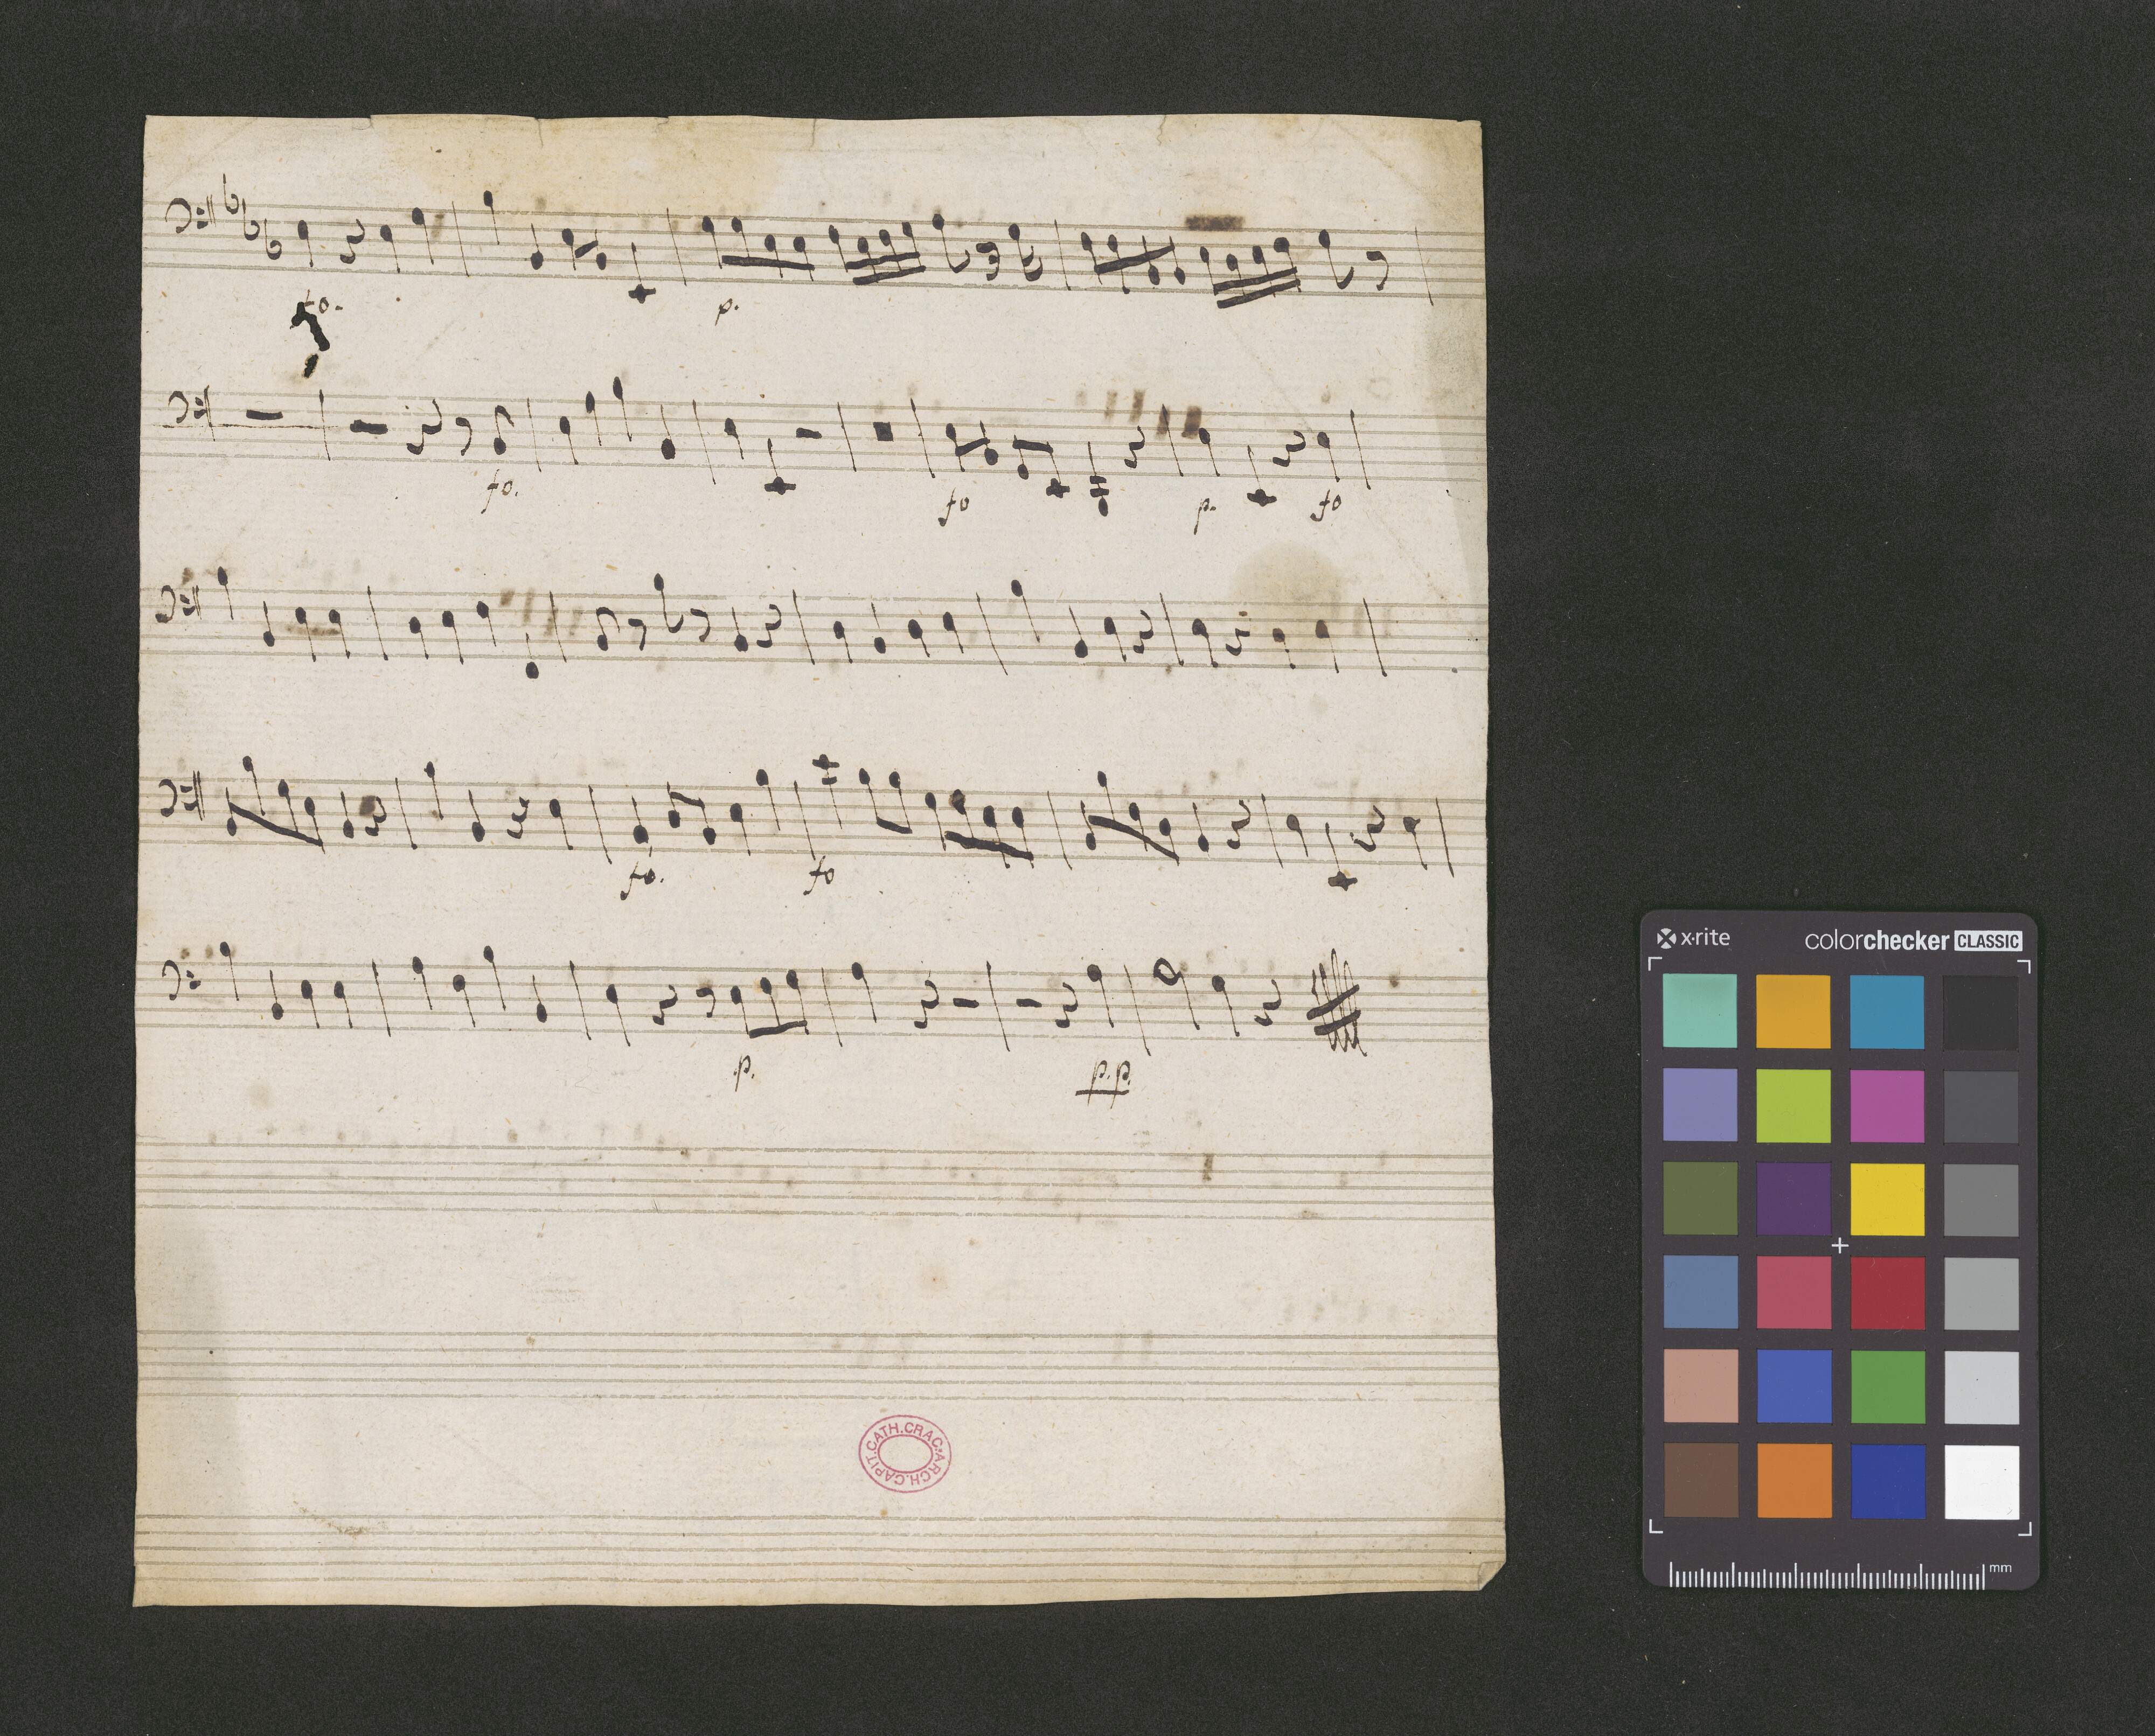 fo.
p.
fo.
fo
p.
fo
fo.
fo
p.
p.p.
CATH.CRAC.ARCH.CAPIT.
x·rite
colorchecker CLASSIC
mm